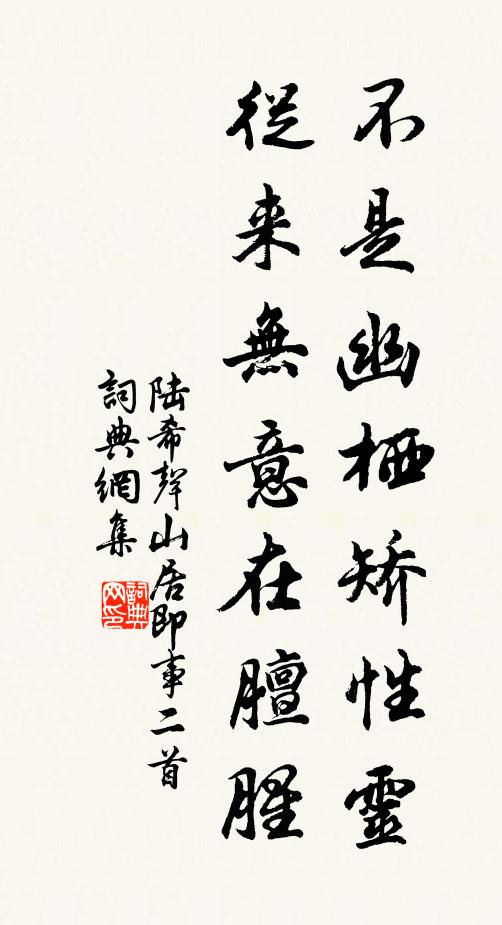 不是幽栖矫性靈
從来無意在膻腥
陆希聲山居即事二首
詞典網集
詞典网印